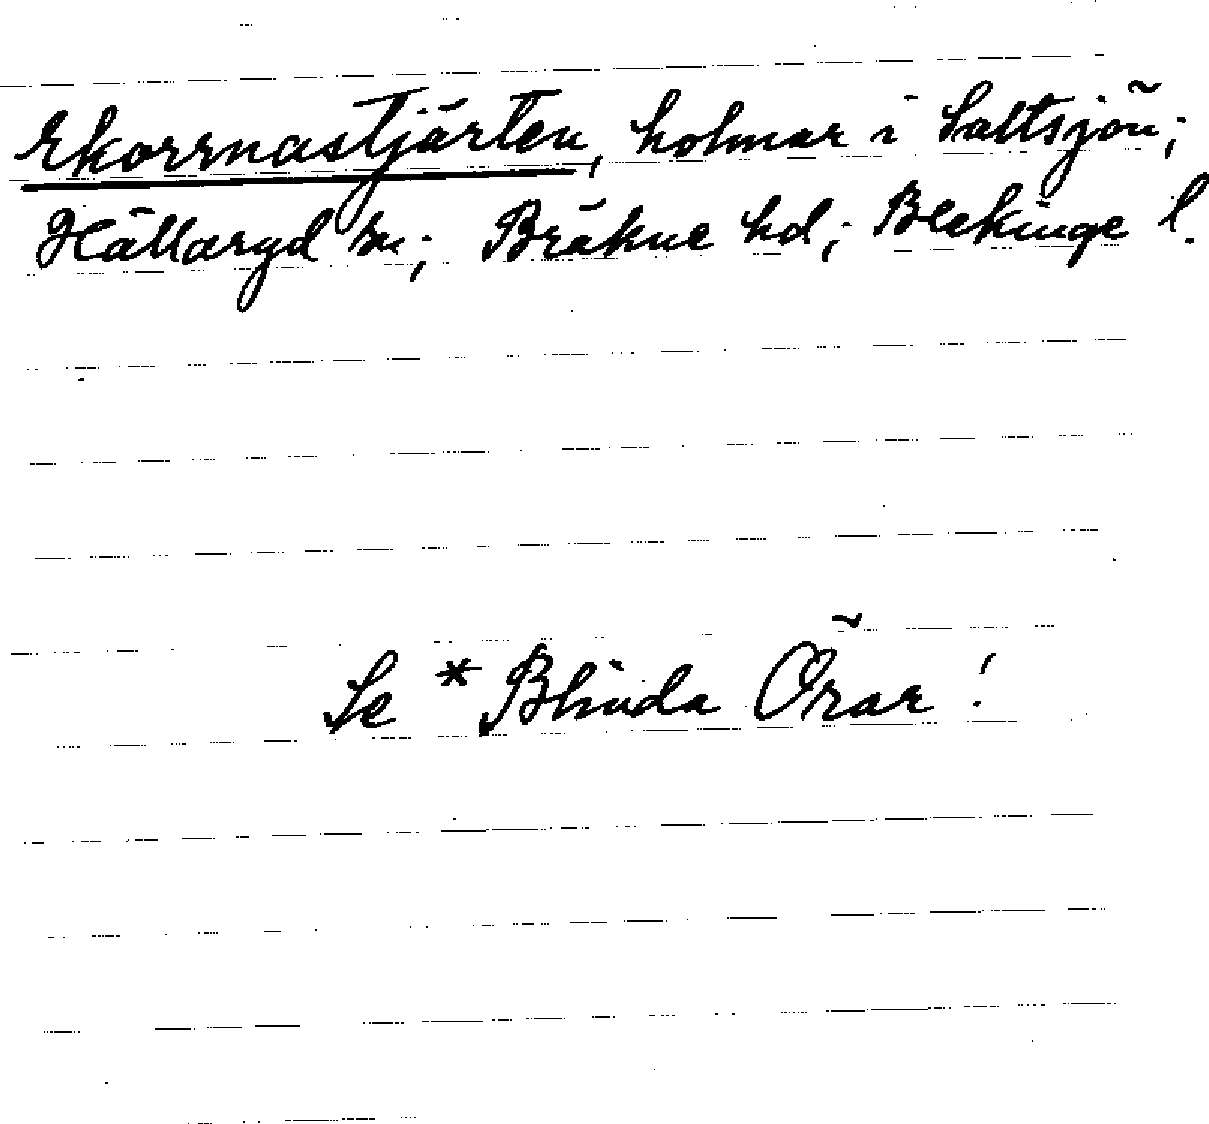 Ekorrnastjärten, holmar i Saltsjön;
Hällaryd sn; Bräkne hd; Blekinge l.
Se * Blinda Örar!